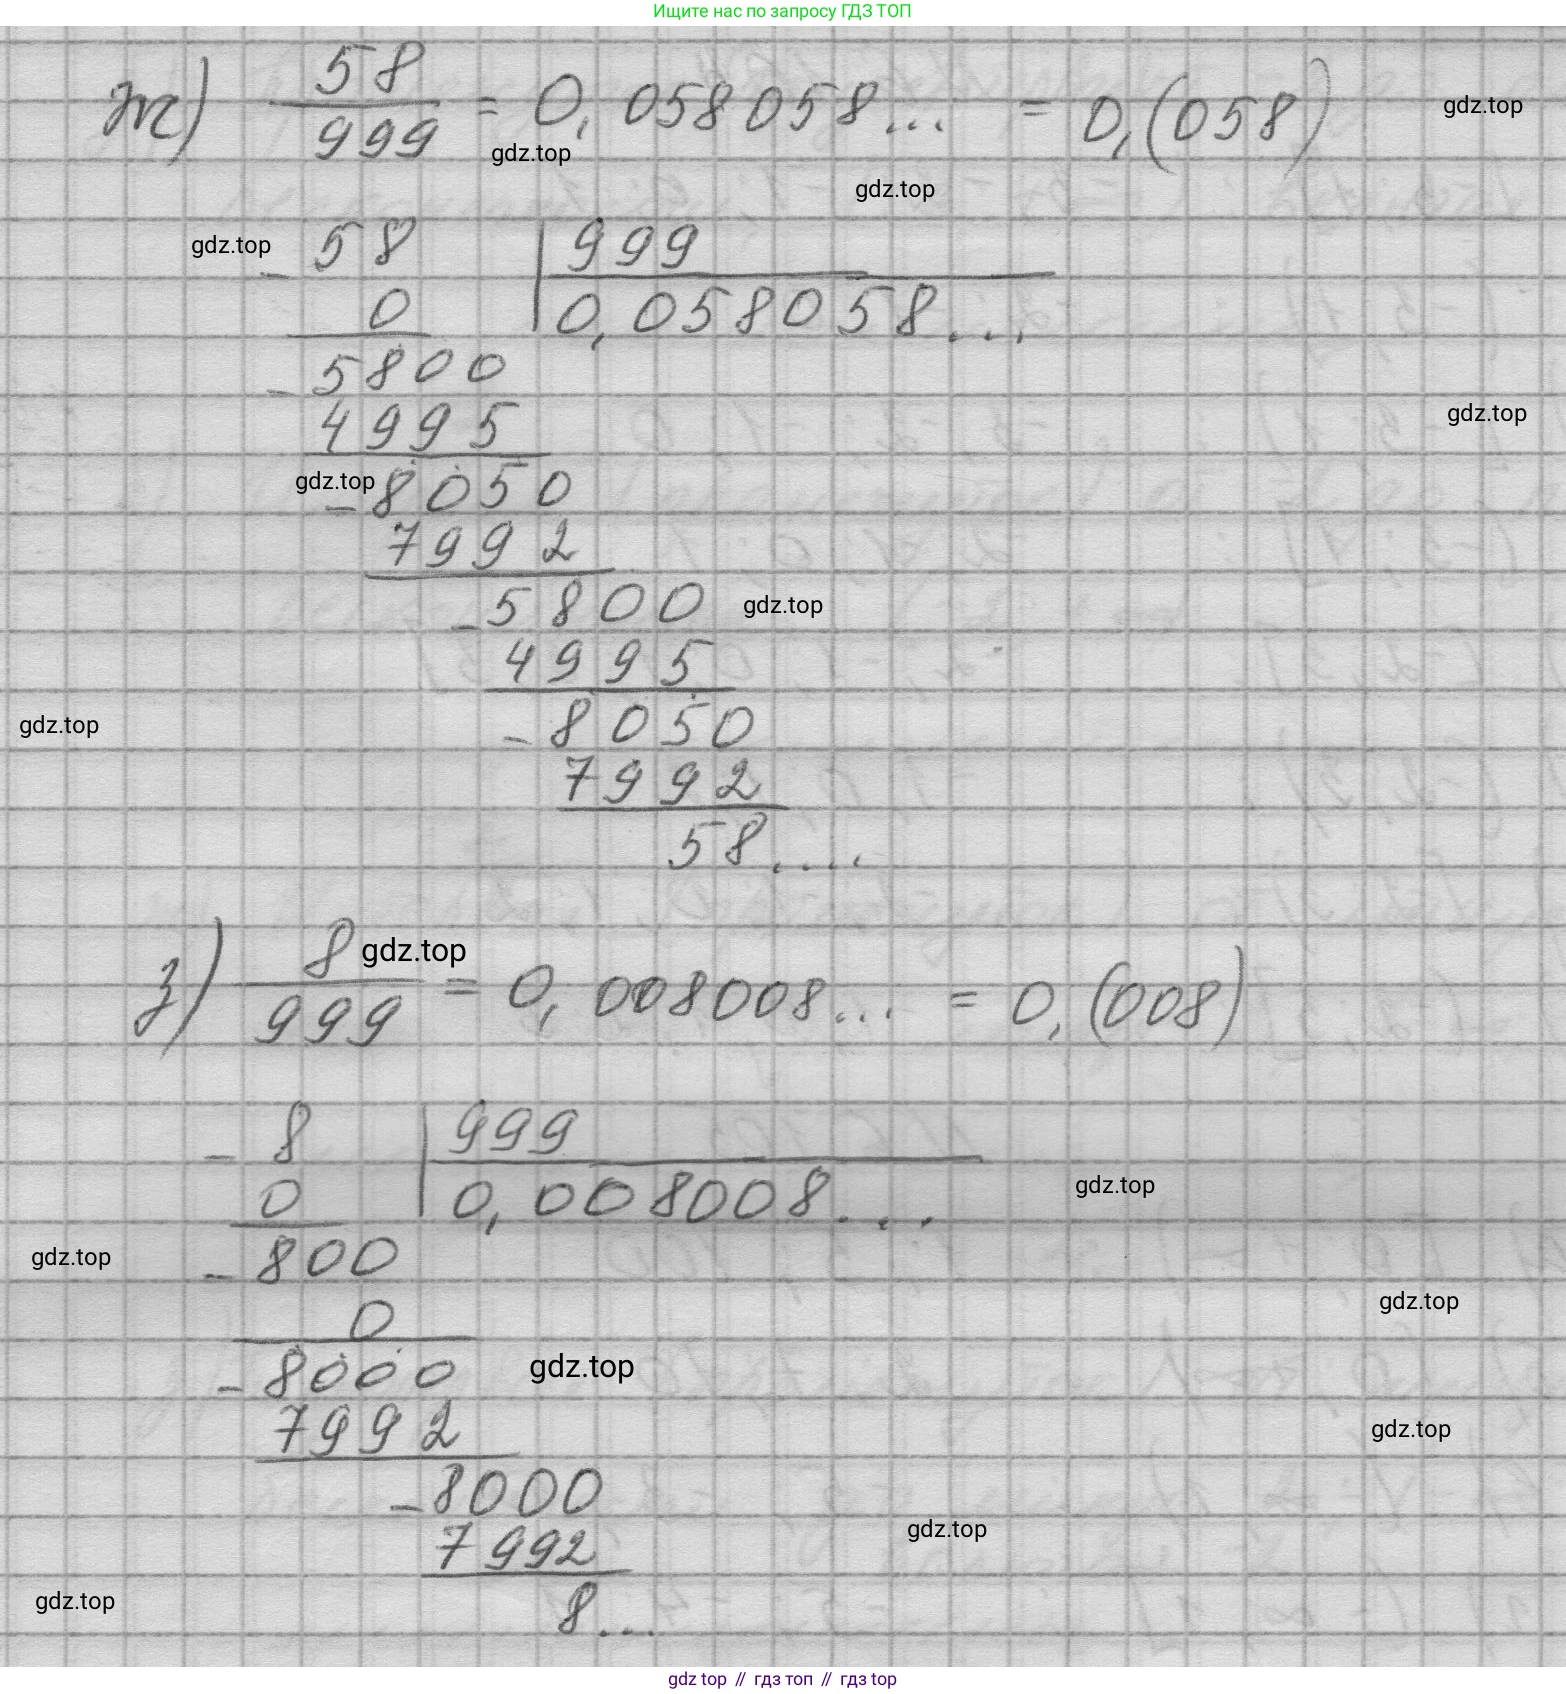 Ищите нас по запросу ГДЗ ТОП
ж) 58/999 = 0,058058... = 0,(058)
gdz.top
gdz.top
gdz.top
gdz.top
- 58 | 999
0 | 0,058058...
- 5800
4995
gdz.top
gdz.top
- 8050
7992
- 5800
gdz.top
4995
- 8050
gdz.top
7992
58....
з) 8/999 = 0,008008... = 0,(008)
gdz.top
- 8 | 999
0 | 0,008008...
gdz.top
- 800
gdz.top
0
gdz.top
- 8000
gdz.top
7992
gdz.top
- 8000
7992
gdz.top
8...
gdz.top
gdz top // гдз топ // гдз top